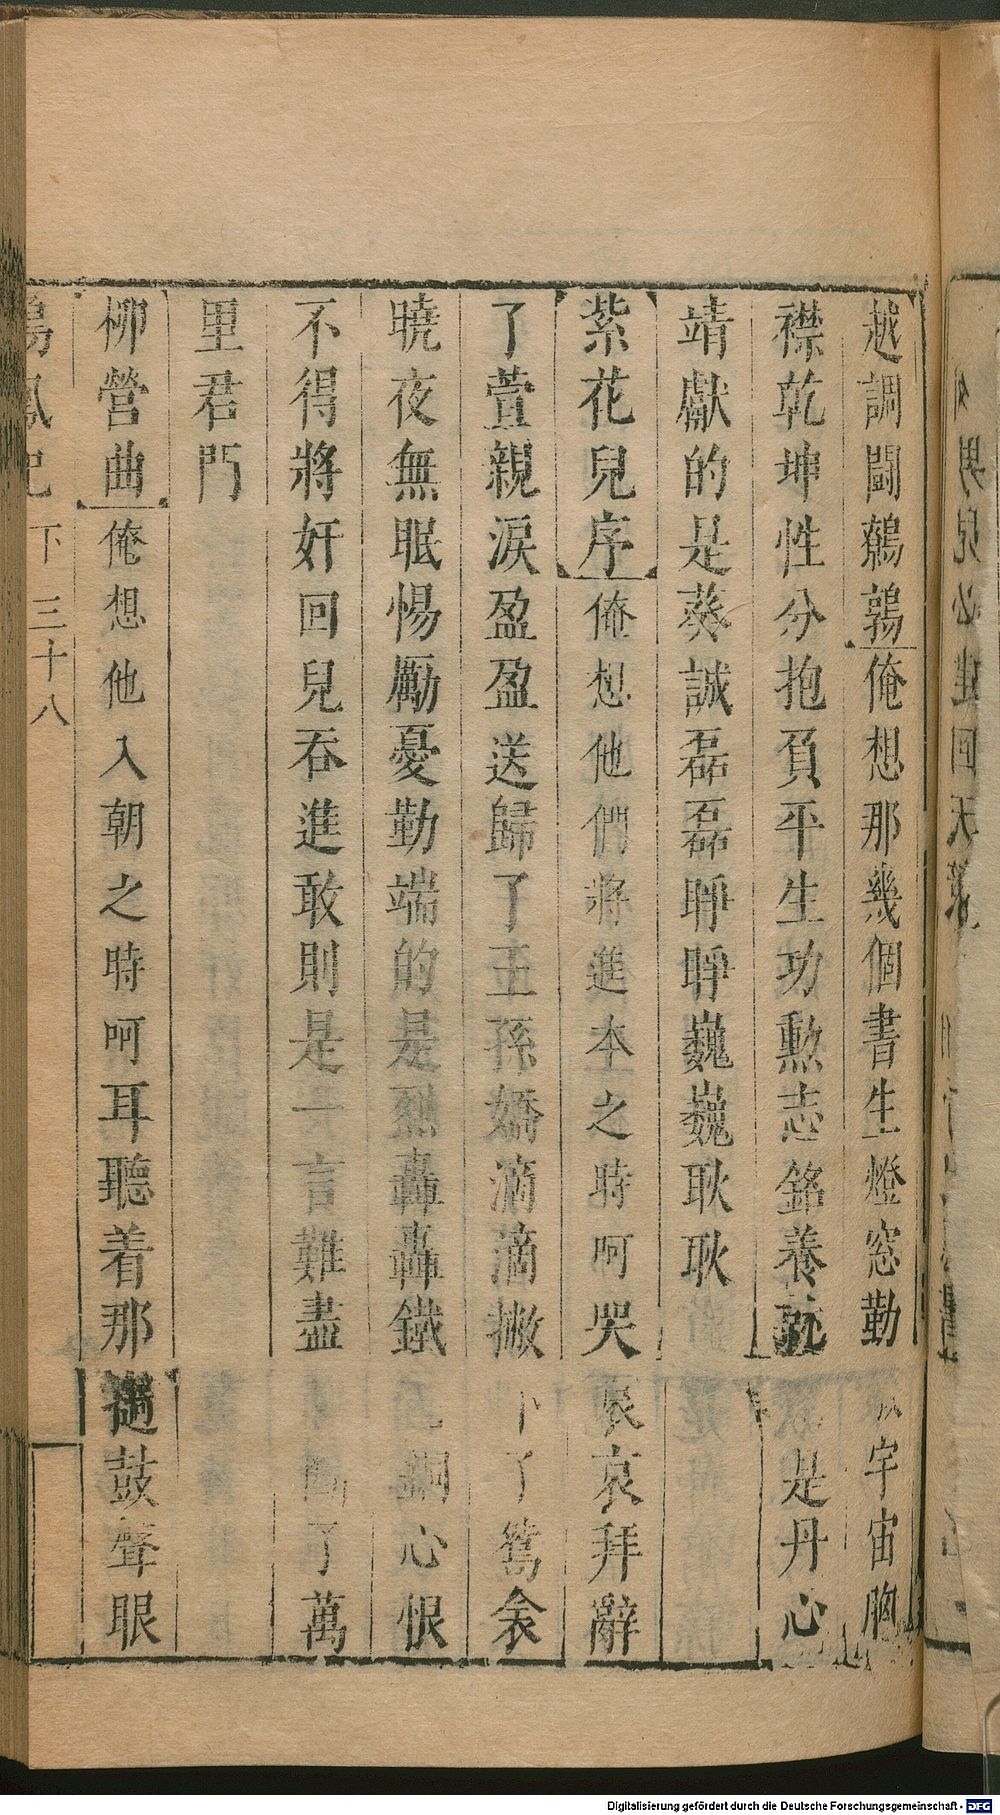 越調鬪鵪鶉俺想那幾個書生燈窓勤宇宙胸
襟乾坤性分抱負平生功勲志銘養就是丹心
靖獻的是葵誠磊磊睜睜巍巍耿耿
紫花兒序俺想他們將進本之時呵哭哀哀拜辭
了萱親淚盈盈送歸了王孫嬌滴滴撇下了鴛衾
曉夜無眠惕勵憂勤端的是烈轟轟鐵銅心恨
不得將奸回兒吞進敢則是一言難盡了萬
里君門
柳營曲俺想他入朝之時呵耳聽着那撾鼓聲眼
鳴鳳記 下 三十八
Digitalisierung gefördert durch die Deutsche Forschungsgemeinschaft - DFG